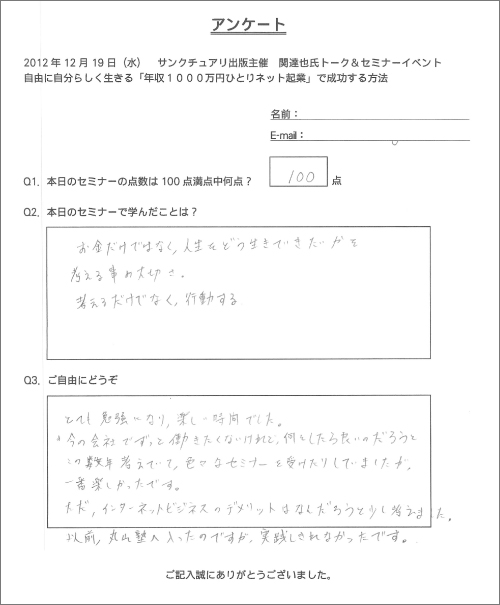 アンケート
2012年12月19日（水）　サンクチュアリ出版主催　関達也氏トーク＆セミナーイベント
自由に自分らしく生きる「年収１０００万円ひとりネット起業」で成功する方法
名前：
E-mail：
Q1，本日のセミナーの点数は100点満点中何点？ 100 点
Q2，本日のセミナーで学んだことは？
お金だけではなく，人生をどう生きていきたいかを
考える事の大切さ。
考えるだけでなく，行動する
Q3，ご自由にどうぞ
とても勉強になり，楽しい時間でした。
今の会社でずっと働きたくないけれど，何をしたら良いのだろうと
この数年考えていて，色々なセミナーを受けたりしていましたが，
一番楽しかったです。
ただ，インターネットビジネスのデメリットはなんだろうと少し考えました。
以前，丸山塾へ入ったのですが，実践しきれなかったです。
ご記入誠にありがとうございました。